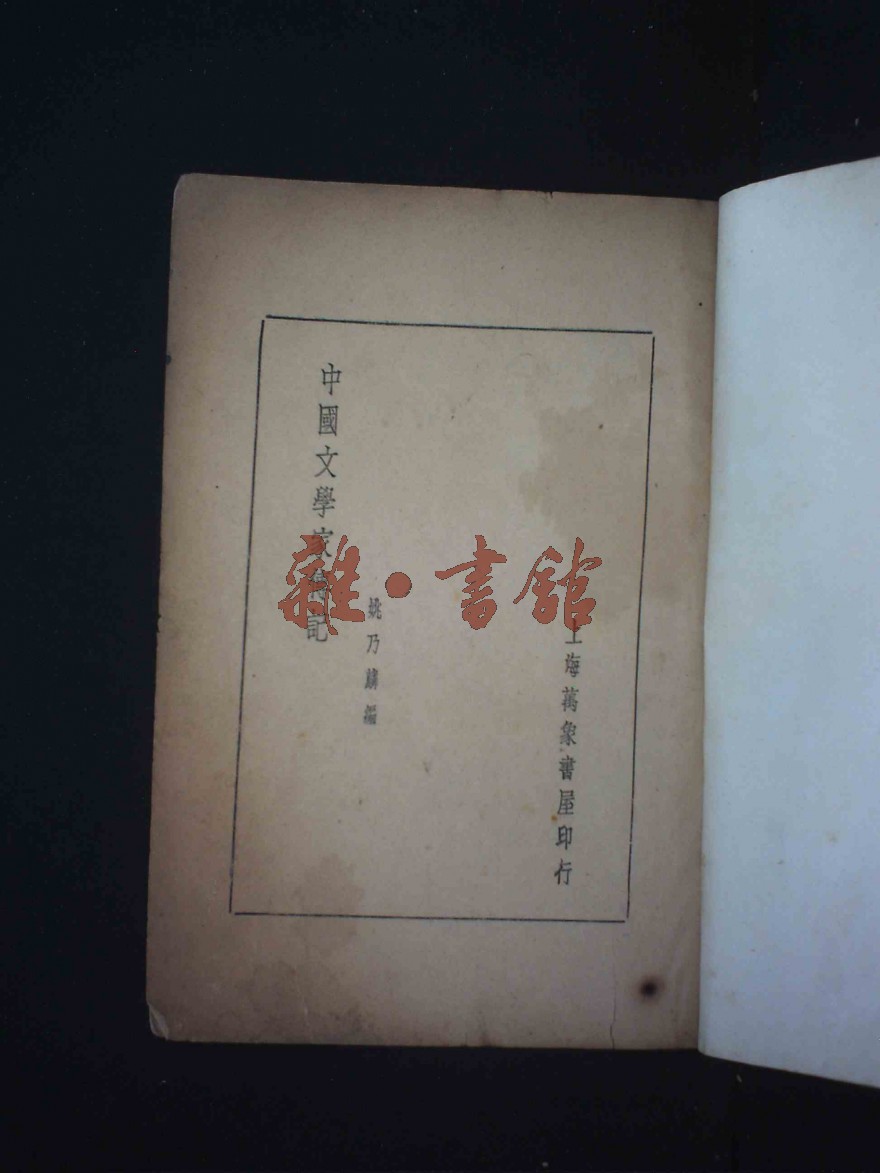 中國文學家傳記
姚乃麟編
上海萬象書屋印行
雜·書館